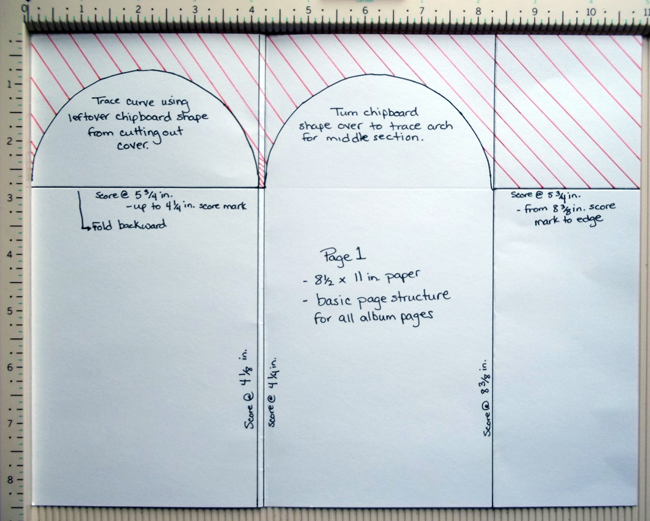 0 1 2 3 4 5 6 7 8 9 10 11
1
2
3
4
5
6
7
8
Trace curve using
leftover chipboard shape
from cutting out
cover.
Turn chipboard
shape over to trace arch
for middle section.
Score @ 5 3/4 in.
- up to 4 1/4 in. score mark
Fold backward
Score @ 5 3/4 in.
- from 8 3/8 in. score
mark to edge
Page 1
- 8 1/2 x 11 in. paper
- basic page structure
for all album pages
Score @ 4 1/8 in.
score @ 4 1/4 in.
Score @ 8 3/8 in.